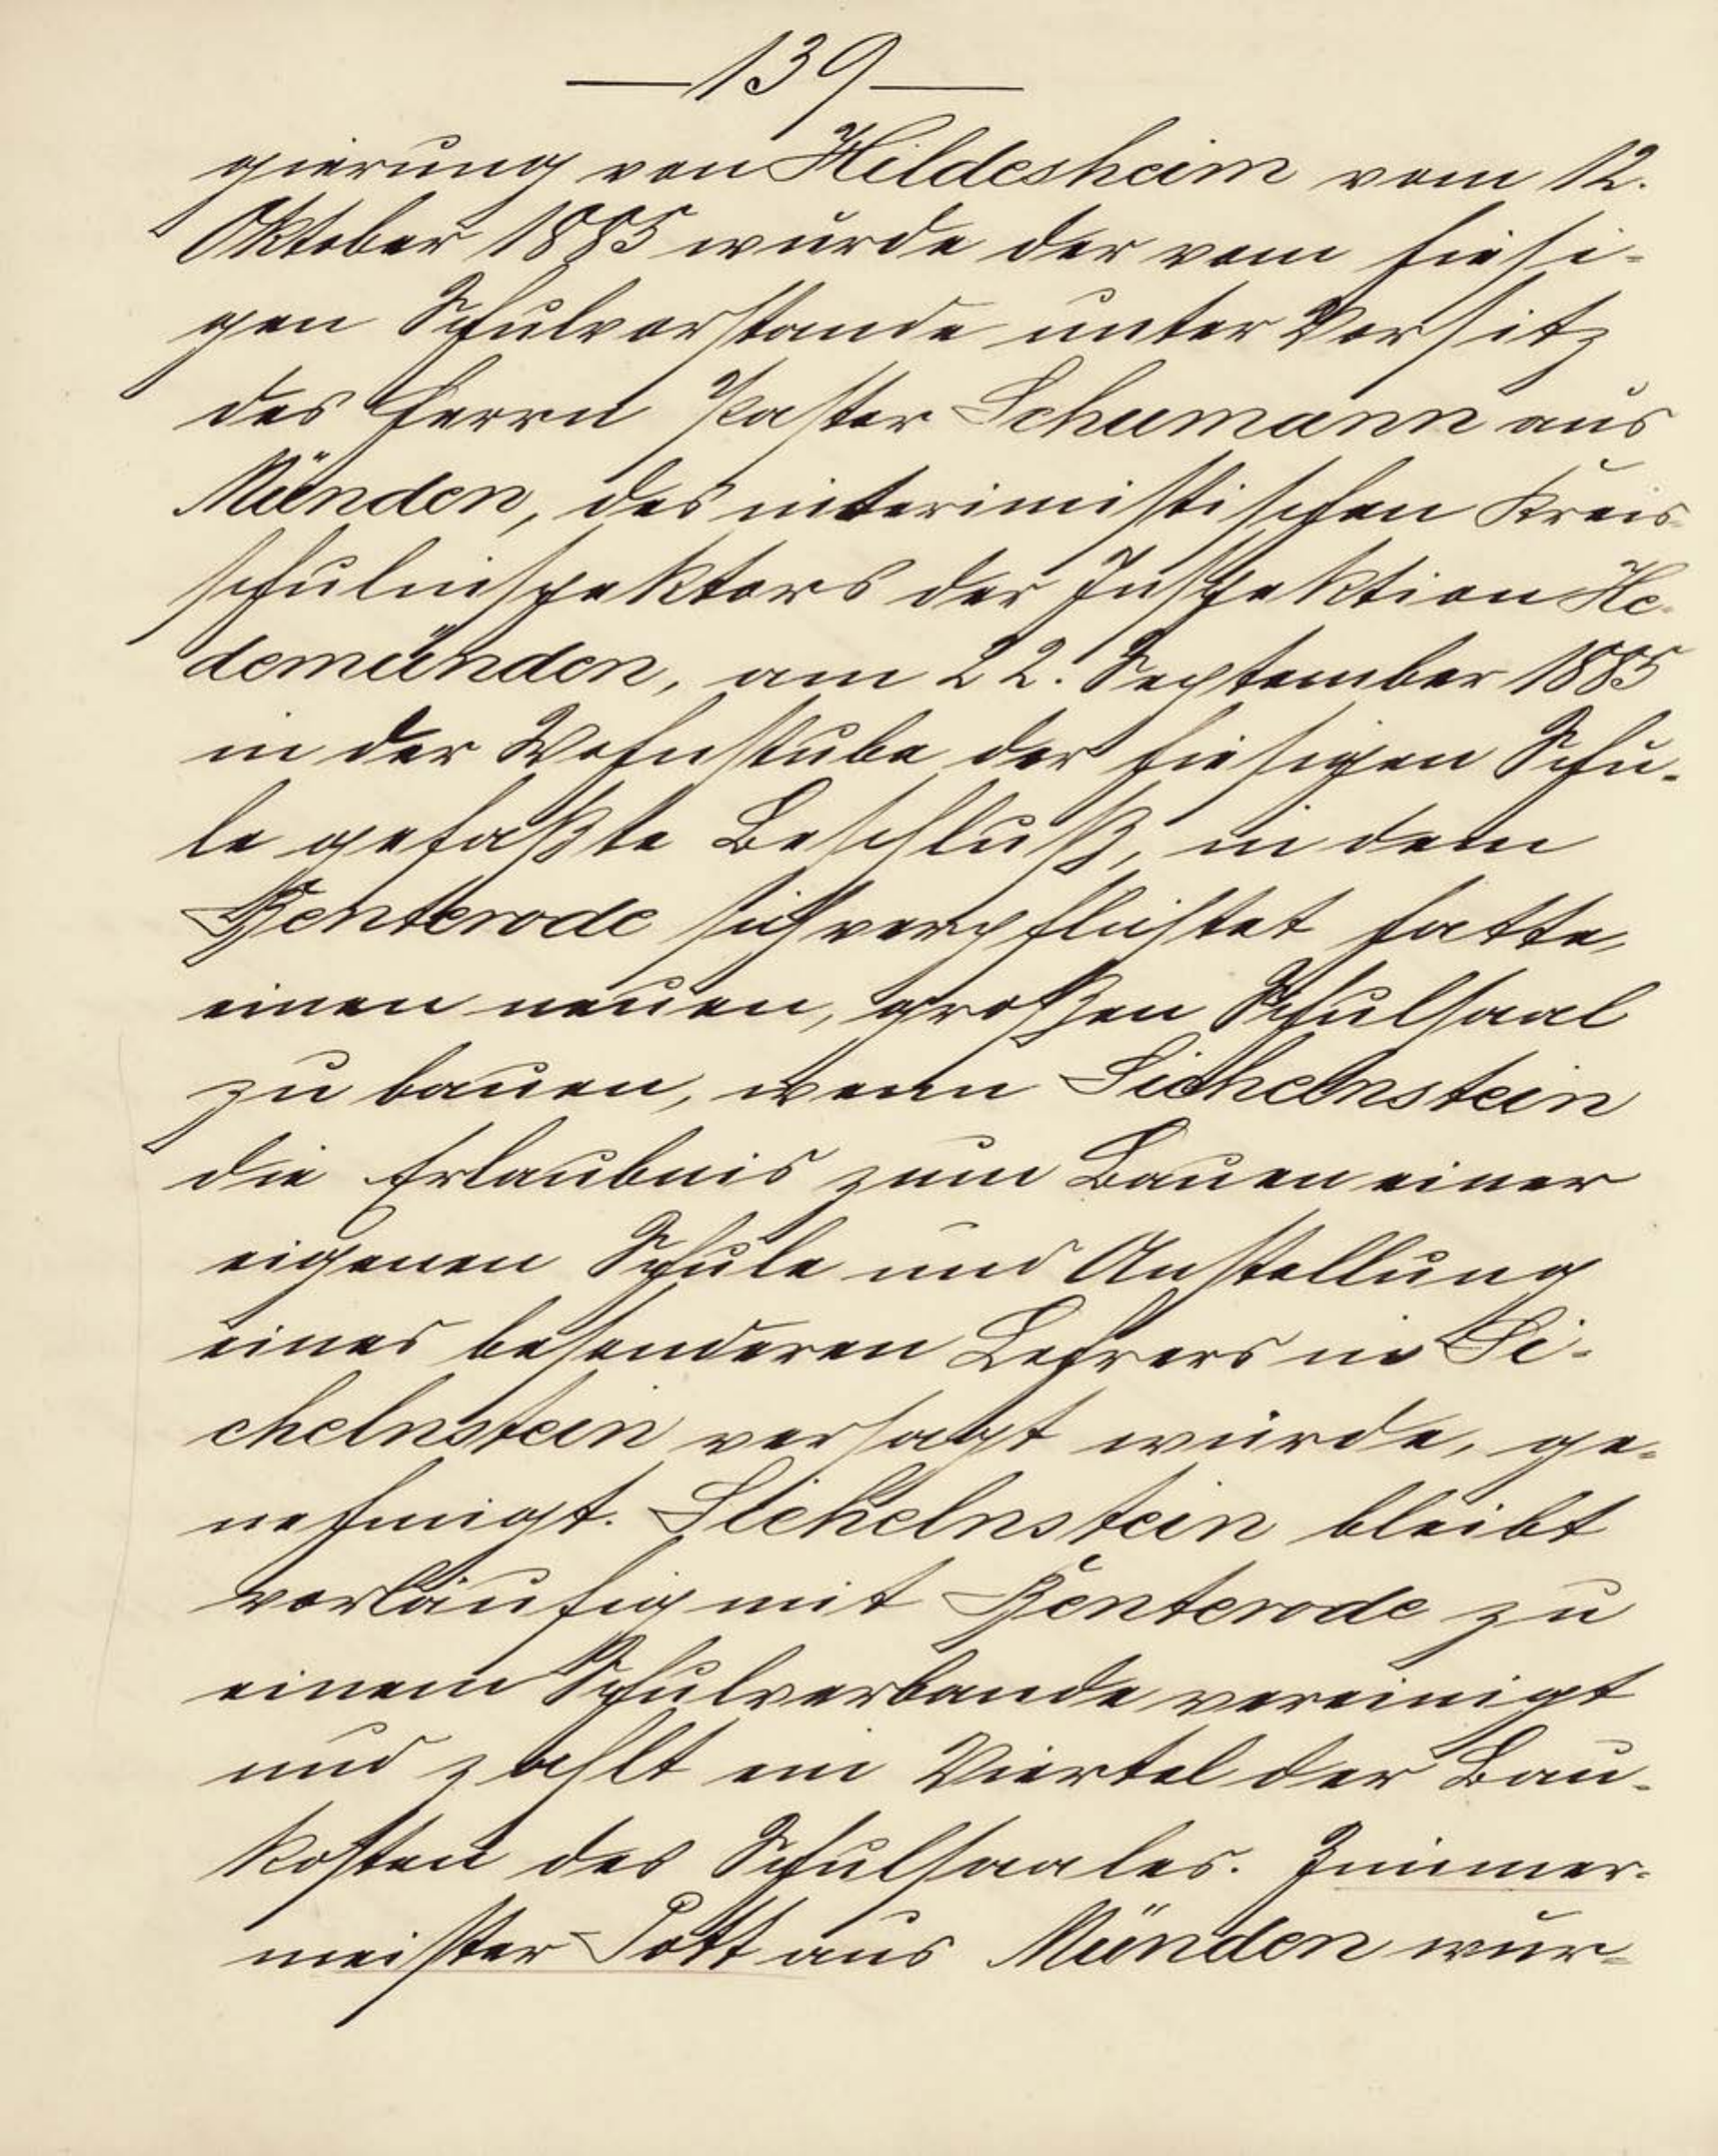 —139—
gierung von Hildesheim vom 12.
Oktober 1885 wurde der vom hiesi-
gen Schulvorstande unter Vorsitz
des Herrn Pastor Schumann aus
Münden, des interimistischen Kreis-
schulinspektors der Inspektion He-
demünden, am 22. September 1885
in der Wohnstube der hiesigen Schu-
le gefaßte Beschluß, in dem
Benterode sich verpflichtet hatte,
einen neuen, großen Schulsaal
zu bauen, wenn Sichelnstein
die Erlaubnis zum Bauen einer
eigenen Schule und Anstellung
eines besonderen Lehrers in Si-
chelnstein versagt würde, ge-
nehmigt. Sichelnstein bleibt
vorläufig mit Benterode zu
einem Schulverbande vereinigt
und zahlt ein Viertel der Bau-
kosten des Schulsaales. Zimmer-
meister Pott aus Münden wur-